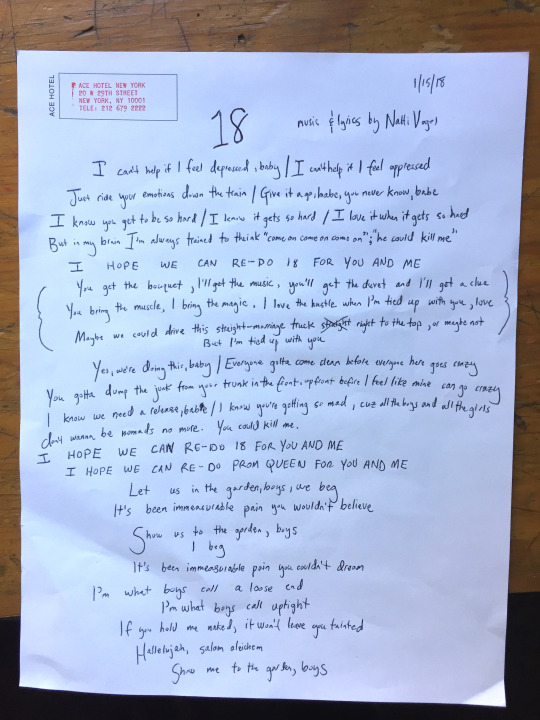 ACE HOTEL
ACE HOTEL NEW YORK
20 W 29TH STREET
NEW YORK, NY 10001
TELE: 212 679 2222
1/15/18
18
music & lyrics by Natti Vogel
I can't help if I feel depressed, baby / I can't help if I feel oppressed
Just ride your emotions down the train / Give it a go, babe, you never know, babe
I know you get to be so hard / I know it gets so hard / I love it when it gets so hard
But in my brain I'm always trained to think "come on come on come on"; "he could kill me"
I HOPE WE CAN RE-DO 18 FOR YOU AND ME
You get the bouquet, I'll get the music, you'll get the duvet and I'll get a clue
You bring the muscle, I bring the magic. I love the hustle when I'm tied up with you, love
Maybe we could drive this straight-marriage truck straight right to the top, or maybe not
But I'm tied up with you
Yes, we're doing this, baby / Everyone gotta come clean before everyone here goes crazy
You gotta dump the junk from your trunk in the front, upfront before I feel like mine can go crazy
I know we need a release, babe / I know you're getting so mad, cuz all the boys and all the girls
don't wanna be nomads no more. You could kill me.
I HOPE WE CAN RE-DO 18 FOR YOU AND ME
I HOPE WE CAN RE-DO PROM QUEEN FOR YOU AND ME
Let us in the garden, boys, we beg
It's been immeasurable pain you wouldn't believe
Show us to the garden, boys
I beg
It's been immeasurable pain you couldn't dream
I'm what boys call a loose end
I'm what boys call uptight
If you hold me naked, it won't leave you tainted
Hallelujah, salam aleichem
Show me to the garden, boys